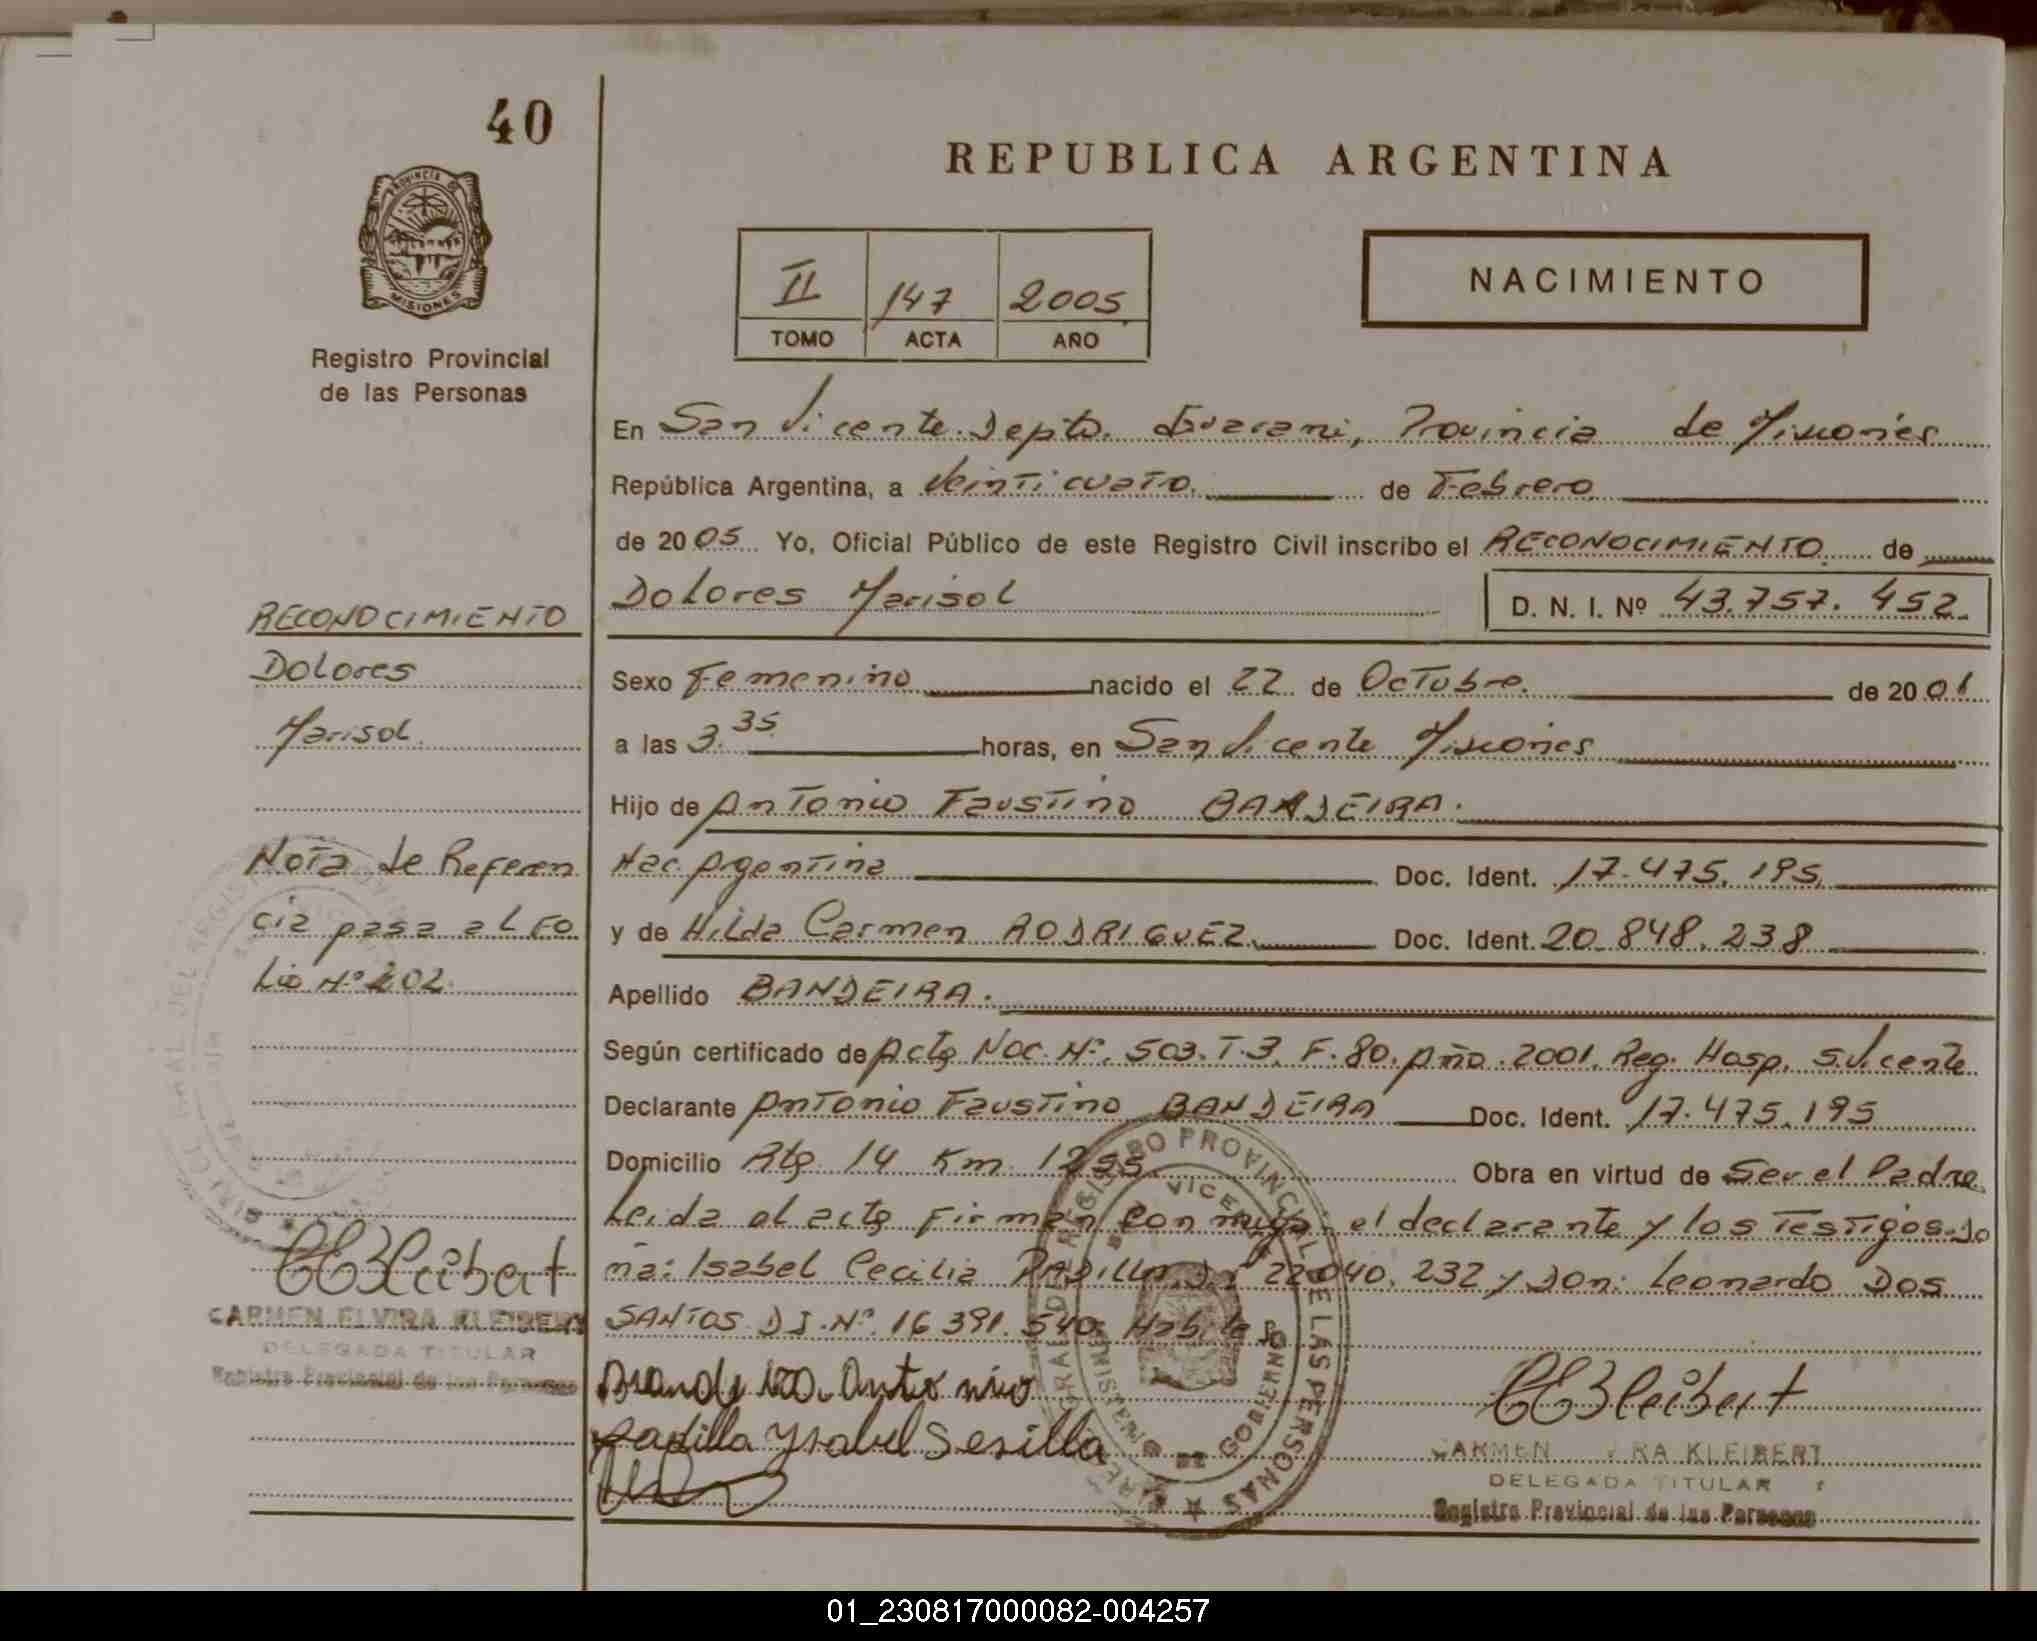 40
PROVINCIA DE
MISIONES
Registro Provincial
de las Personas
REPUBLICA ARGENTINA
II 147 2005
TOMO ACTA AÑO
NACIMIENTO
En San Vicente Depto. Guarani, Provincia de Misiones
República Argentina, a Veinticuatro de Febrero
de 2005 Yo, Oficial Público de este Registro Civil inscribo el RECONOCIMIENTO de
Dolores Marisol D. N. I. Nº 43.757.452
Sexo Femenino nacido el 22 de Octubre de 2001
a las 3.35 horas, en San Vicente Misiones
Hijo de Antonio Faustino BANDEIRA.
Nac. Argentina Doc. Ident. 17.475.195
y de Hilda Carmen RODRIGUEZ Doc. Ident. 20.848.238
Apellido BANDEIRA.
Según certificado de Acta Nac. Nº 503. T. 3. F. 80. Año 2001. Reg. Hosp. S. Vicente
Declarante Antonio Faustino BANDEIRA Doc. Ident. 17.475.195
Domicilio Rta 14 Km Obra en virtud de Ser el Padre
Leida al acta Firman con migo el declarante y los Testigos. Do
ña: Isabel Cecilia PADILLA 22040.232 y Don: Leonardo DOS
SANTOS D I. Nº 16 391. 540. Habiles
Antonio
Padilla Ysabel Sesilla
CEKleibert
CARMEN KLEIBERT
DELEGADA TITULAR
Registro Provincial de las Personas
REGISTRO PROVINCIAL DE LAS PERSONAS
RECONOCIMIENTO
Dolores
Marisol
Nota de Referen
cia pasa al Fo
lio Nº 202
CEKleibert
CARMEN ELVIRA KLEIBERT
DELEGADA TITULAR
Registro Provincial de las Personas
01_230817000082-004257